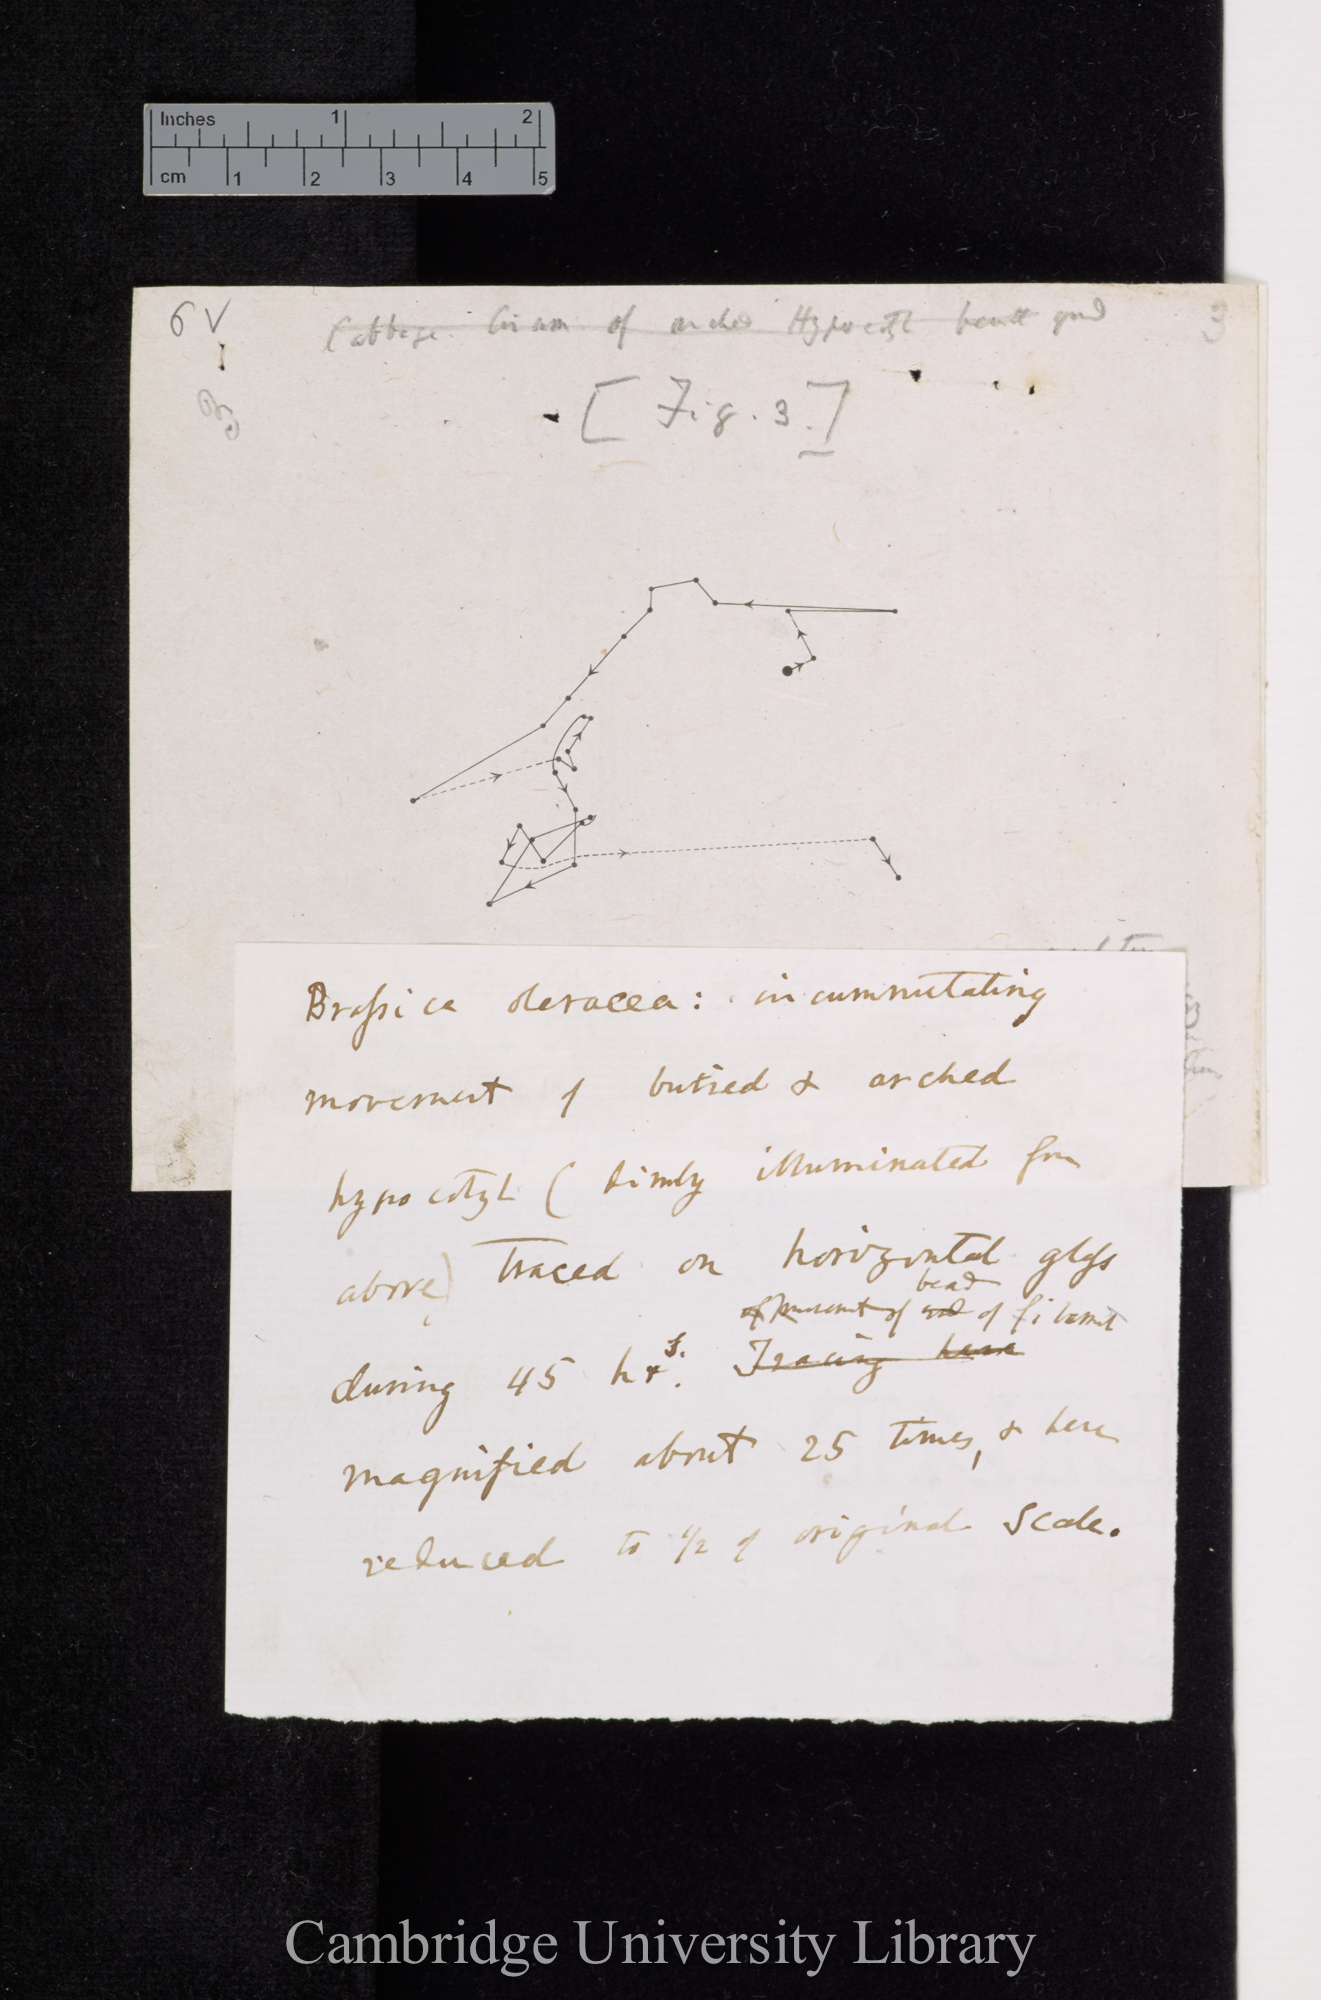 Inches 1 2
cm 1 2 3 4 5
6 V
3
Cabbage. Circum of arched Hypocotyl beneath grnd
3
[Fig. 3.]
Brassica oleracea: circumnutating
movement of buried & arched
hypocotyl (dimly illuminated from
above) traced on horizontal glass
bead
movement of of filament
during 45 hrs. Tracing here
magnified about 25 times, & here
reduced to 1/2 of original scale.
Cambridge University Library